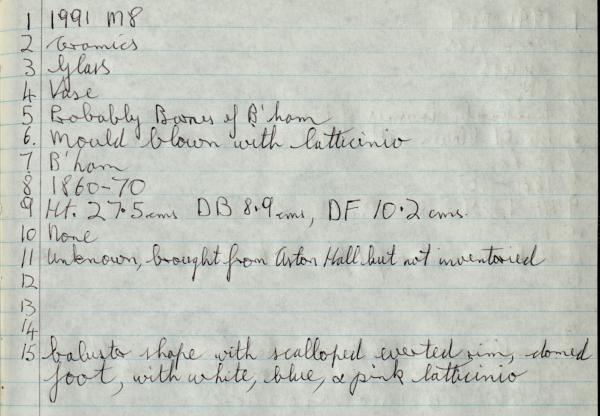 1 1991 M8
2 Ceramics
3 Glass
4 Vase
5 Probably Barnes of B'ham
6. Mould blown with latticinio
7 B'ham
8 1860-70
9 Ht. 27.5 cms DB 8.9 cms, DF 10.2 cms.
10 None
11 Unknown, brought from Aston Hall but not inventoried
12
13
14
15 baluster shape with scalloped everted rim, domed
foot, with white, blue, & pink latticinio